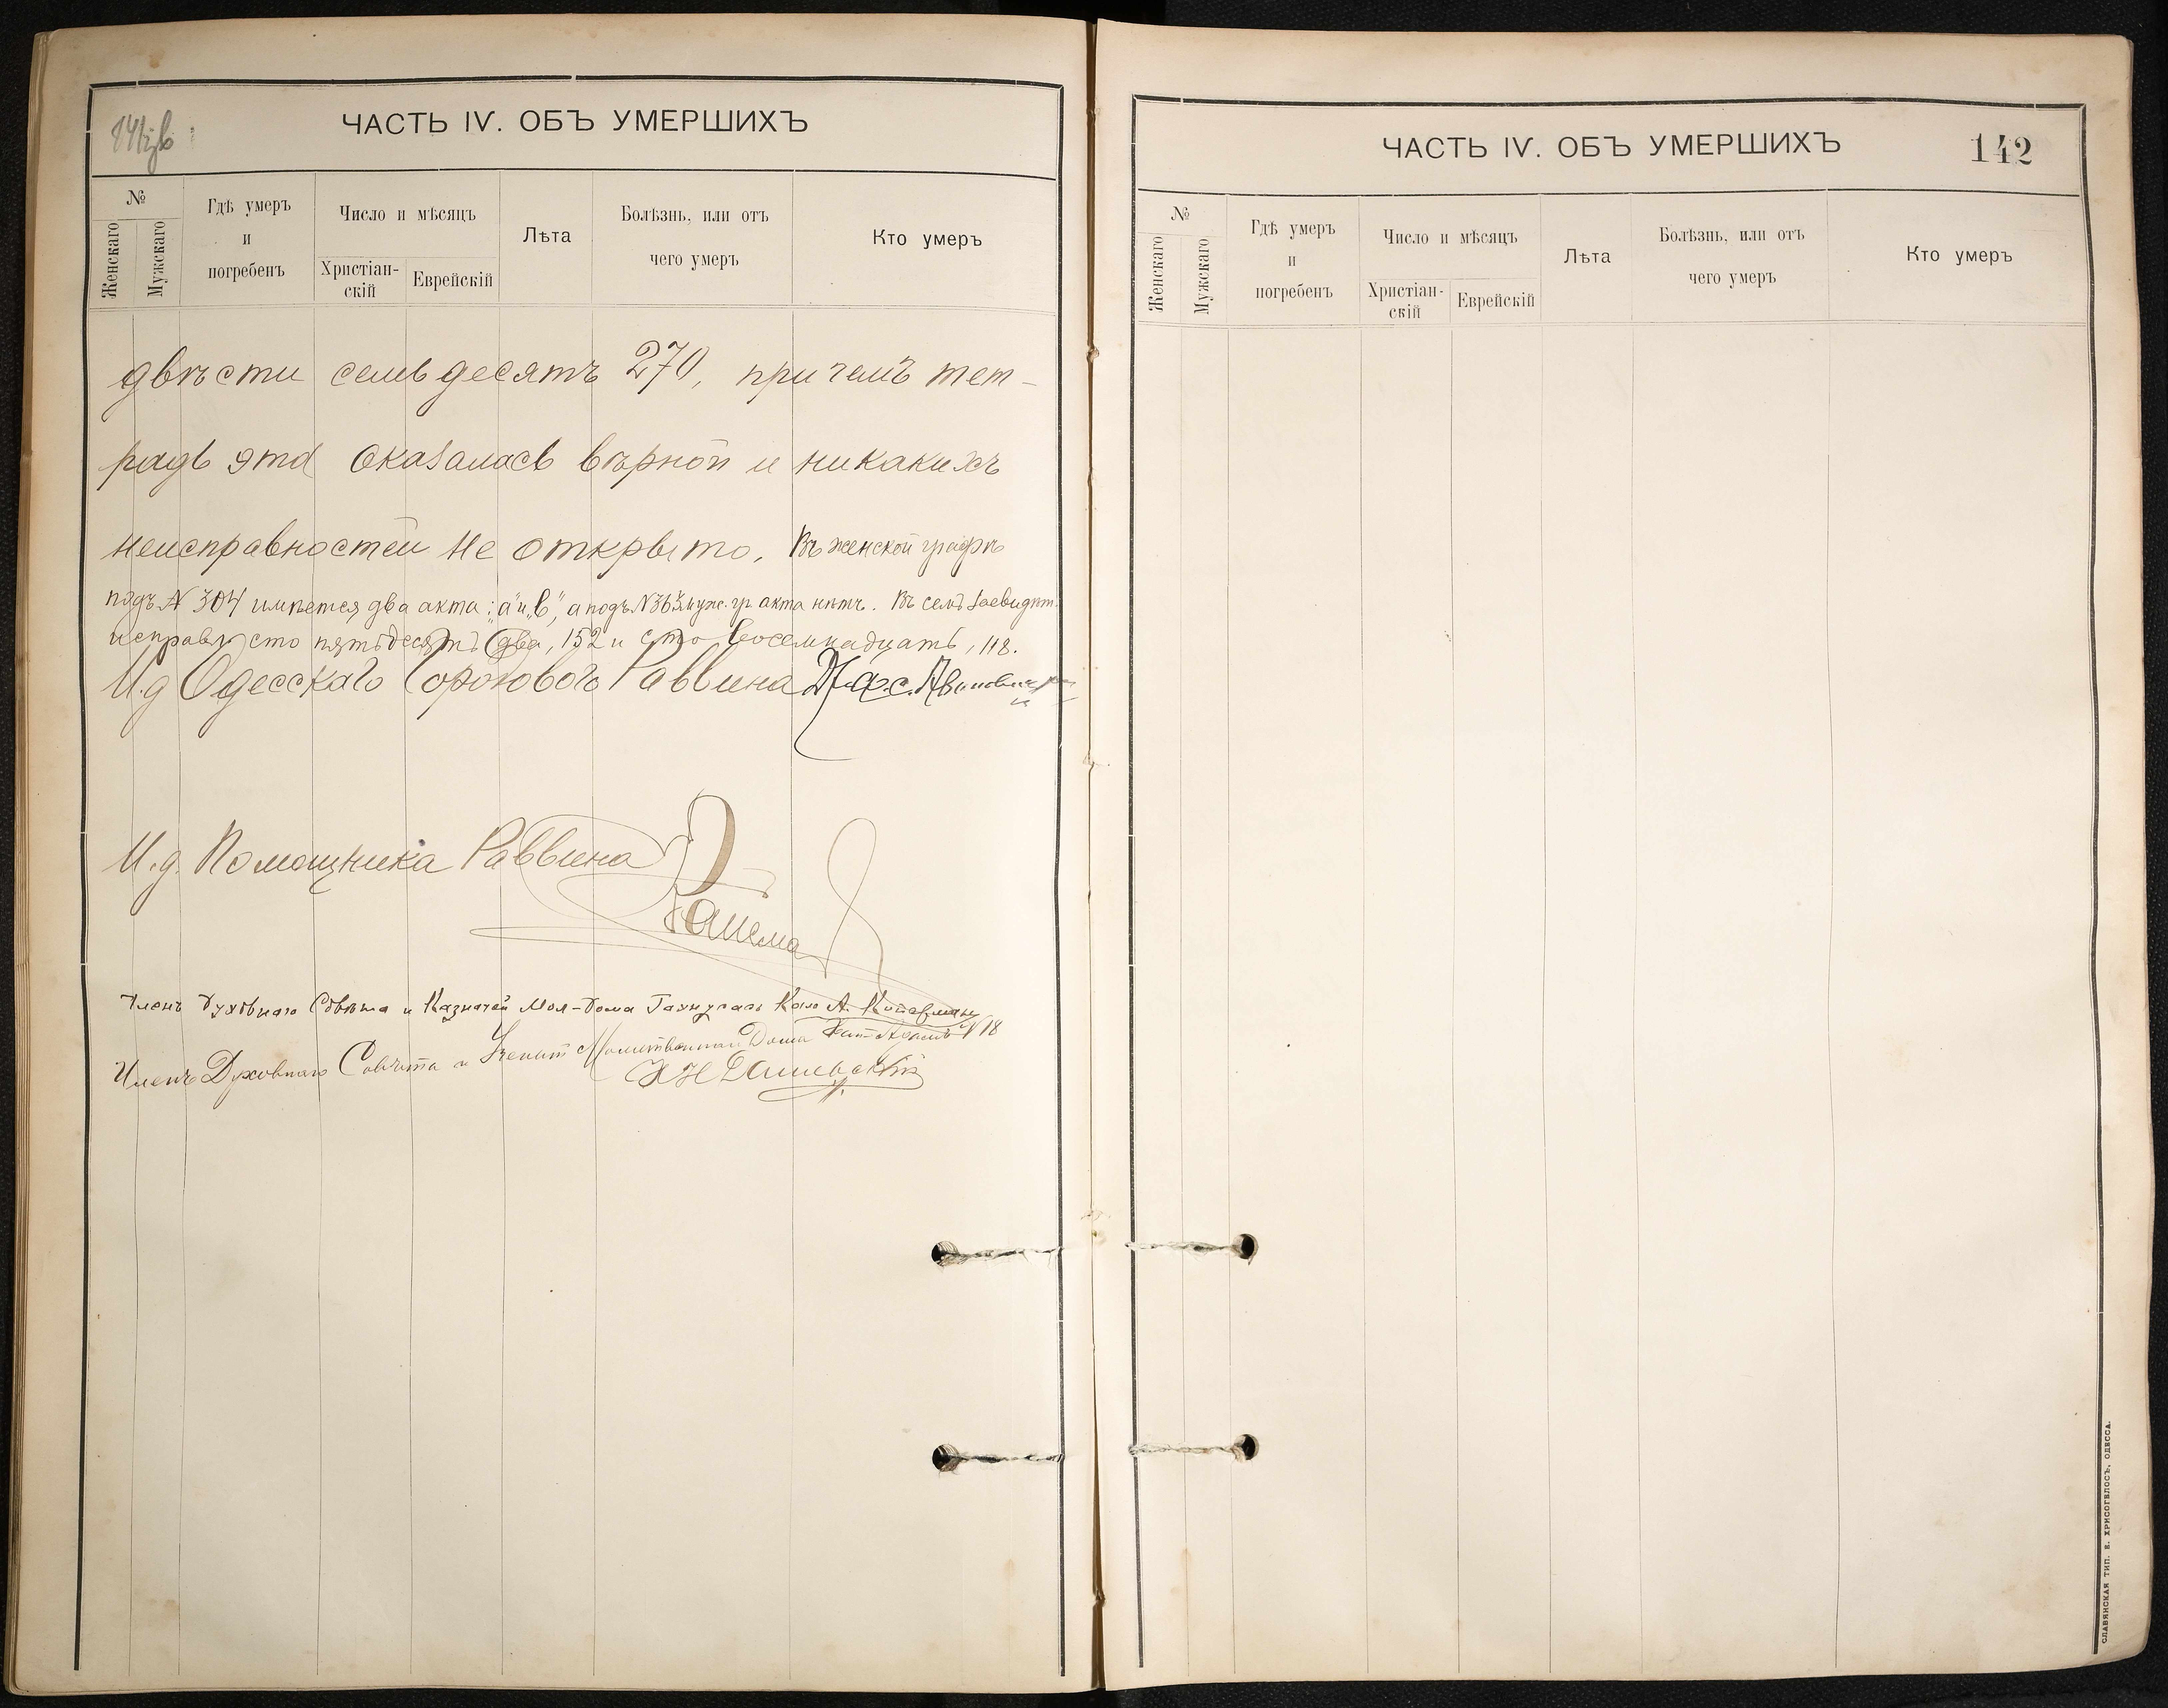 141 об
ЧАСТЬ IV. ОБЪ УМЕРШИХЪ
№
Женскаго
Мужскаго
Гдѣ умеръ
и
погребенъ
Число и мѣсяцъ
Христіан-
скій
Еврейскій
Лѣта
Болѣзнь, или отъ
чего умеръ
Кто умеръ
двѣсти семьдесятъ 270, при чемъ тет-
радь эта оказалась вѣрной и никакихъ
неисправностей не открыто. Въ женской графѣ
подъ № 304 имѣется два акта: „а" и „б", а подъ № муж. гр. акта нѣтъ. Въ семъ
исправл сто пятьдесятъ два, 152 и сто восемнадцать, 118.
И.д Одесскаго Городового Раввина
И.д. Помощника Раввина
Членъ Духовнаго Совѣта и Казначей Мол-Дома А.
Членъ Духовнаго Совѣта и Молитвеннаго Дома № 18
ЧАСТЬ IV. ОБЪ УМЕРШИХЪ
142
№
Женскаго
Мужскаго
Гдѣ умеръ
и
погребенъ
Число и мѣсяцъ
Христіан-
скій
Еврейскій
Лѣта
Болѣзнь, или отъ
чего умеръ
Кто умеръ
СЛАВЯНСКАЯ ТИП. Е. ХРИСОГЕЛОСЪ, ОДЕССА.